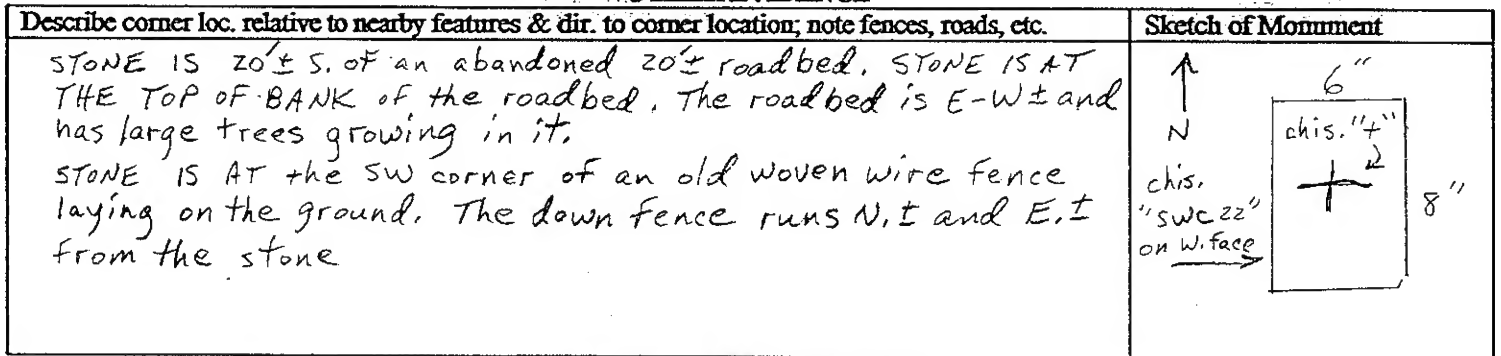 Describe corner loc. relative to nearby features & dir. to corner location; note fences, roads, etc.
STONE IS 20'± S. OF an abandoned 20'± roadbed. STONE IS AT
THE TOP OF BANK of the roadbed. The roadbed is E-W ± and
has large trees growing in it.
STONE IS AT the SW corner of an old woven wire fence
laying on the ground. The down fence runs N.± and E.±
from the stone
Sketch of Monument
N
6"
chis. "+"
8"
chis.
"SWC 22"
on W. face